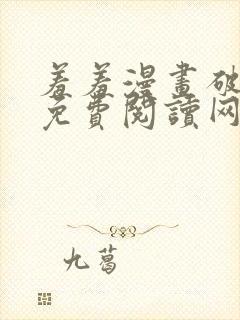 羞羞漫畫破
免費閱讀网
九葛